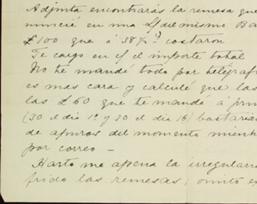 Adjunta encontrarás la remesa que
nuncié en una L/ del mismo Ba
£100 que á 38 7/8 costaron
Te cargo en c/ el importe total
No he mandé todo por telégraf
es mas cara y calculé que las
las £60 que te mandé á prin
(30 el dia 1º y 30 el dia 16) bastarian
de apuros del momento mient
por correo —
Harto me apena la irregulari
frido las remesas; omito e